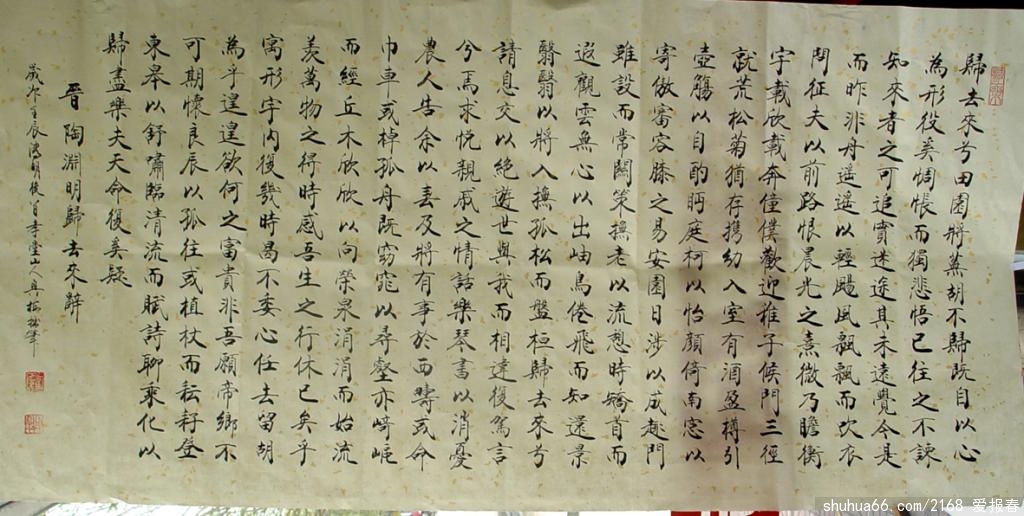 歸去來兮田園將蕪胡不歸既自以心
為形役奚惆悵而獨悲悟已往之不諫
知來者之可追實迷途其未遠覺今是
而昨非舟遙遙以輕颺風飄飄而吹衣
問征夫以前路恨晨光之熹微乃瞻衡
宇載欣載奔僮僕歡迎稚子候門三徑
就荒松菊猶存携幼入室有酒盈樽引
壺觴以自酌眄庭柯以怡顏倚南窓以
寄傲審容膝之易安園日涉以成趣門
雖設而常關策撫老以流憩時矯首而
遐觀雲無心以出岫鳥倦飛而知還景
翳翳以將入撫孤松而盤桓歸去來兮
請息交以絕遊世與我而相違復駕言
兮焉求悅親戚之情話樂琴書以消憂
農人告余以春及將有事於西疇或命
巾車或棹孤舟既窈窕以尋壑亦崎嶇
而經丘木欣欣以向榮泉涓涓而始流
羨萬物之得時感吾生之行休已矣乎
寓形宇內復幾時曷不委心任去留胡
為乎遑遑欲何之富貴非吾願帝鄉不
可期懷良辰以孤往或植杖而耘耔登
東皋以舒嘯臨清流而賦詩聊乘化以
歸盡樂夫天命復奚疑
晉 陶淵明歸去來辭
歲次壬辰清明後 山人
shuhua66.com/2168 爱报春